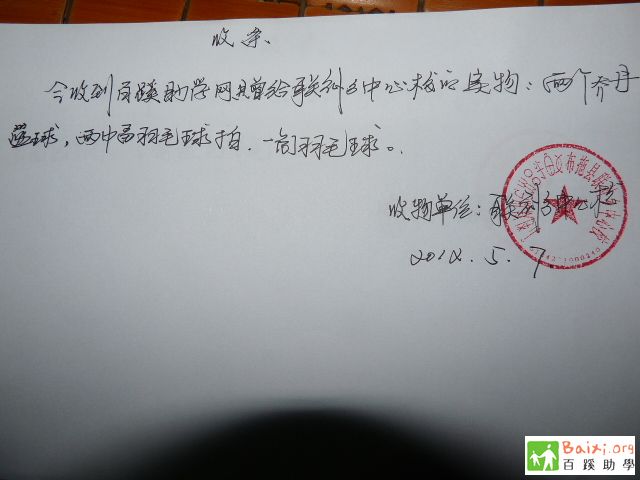 收条
今收到百蹊助学网其赠给联纠乡中心校的实物：两个乔丹
篮球，两中畐羽毛球拍，一筒羽毛球。
收物单位：联纠乡中心校
2012.5.7
布拖县联
Baixi.org
百蹊助學